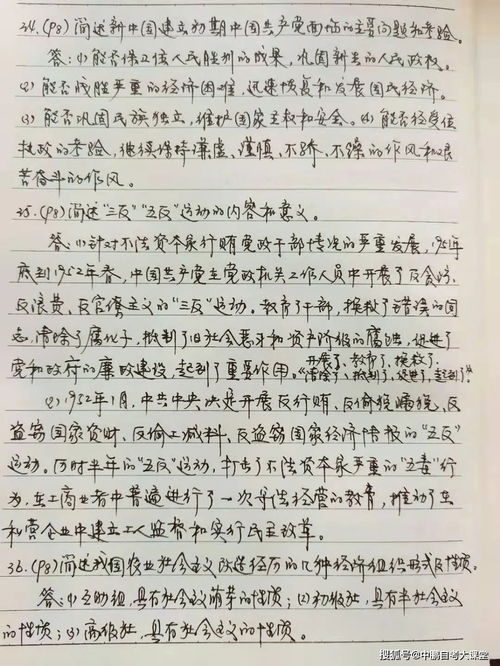 34.(P8)简述新中国建立初期中国共产党面临的主要问题和考验。
答:(1)能否保卫住人民胜利的成果,巩固新生的人民政权。
(2)能否战胜严重的经济困难,迅速恢复和发展国民经济。
(3)能否巩固民族独立,维护国家主权和安全。(4)能否经受住
执政的考验,继续保持谦虚、谨慎、不骄、不躁的作风和艰
苦奋斗的作风。
35.(P8)简述“三反”“五反”运动的内容和意义。
答:(1)针对不法资本家行贿党政干部情况的严重发展,1951年
底到1952年春,中国共产党在党政机关工作人员中开展了反贪污、
反浪费、反官僚主义的“三反”运动。教育了干部,挽救了犯错误的同
志,清除了腐化分子,抵制了旧社会恶习和资产阶级的腐蚀,促进了
党和政府的廉政建设,起到了重要作用。
开展了、教育了、挽救了、
“清除了、抵制了、促进了、起到了”
(2)1952年1月,中共中央决定开展反行贿、反偷税漏税、反
盗窃国家资财、反偷工减料、反盗窃国家经济情报的“五反”
运动。历时半年的“五反”运动,打击了不法资本家严重的“五毒”行
为,在工商业者中普遍进行了一次守法经营的教育,推动了在
私营企业中建立工人监督和实行民主改革。
36.(P8)简述我国农业社会主义改造经历的几种经济组织形式及性质。
答:(1)互助组,具有社会主义萌芽的性质;(2)初级社,具有半社会主义
的性质;(3)高级社,具有社会主义的性质。
搜狐号@中鹏自考大课堂